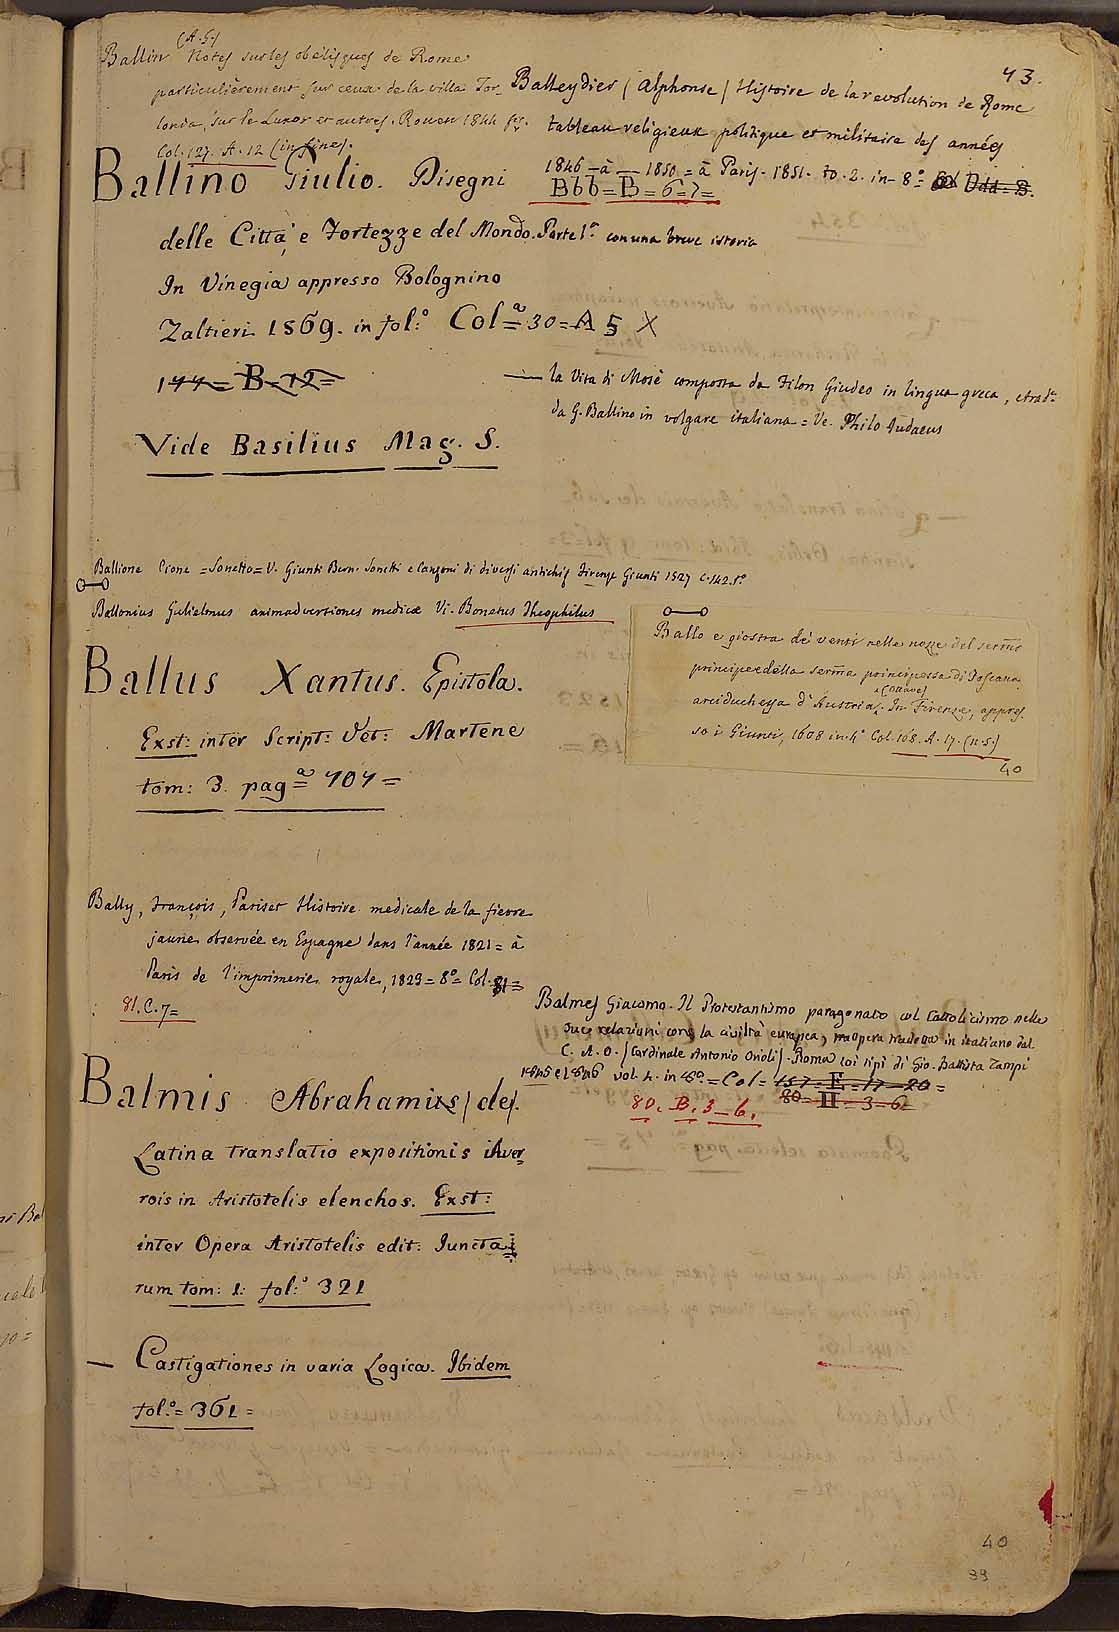 43.
Ballin (A. G.) Notes sur les obélisques de Rome
particulièrement sur ceux de la villa Tor-
lonia, sur le Luxor et autres. Rouen 1844 fig.
Col. 127. A. 12 (in fine).
Balleydier (Alphonse) Histoire de la revolution de Rome
tableau religieux politique et militaire des années
1846 – à – 1850 = à Paris. 1851. to. 2. in 8º = Col Ddd = B.
Bbb = B = 6 = 7 =
Ballino Giulio. Disegni
delle Città e Fortezze del Mondo. Parte 1ª con una breve istoria
In Vinegia appresso Bolognino
Zaltieri 1569. in fol:º Colª = 30 = A 5 X
144 = B = 12 =
— la Vita di Mosè composta da Filon Giudeo in lingua greca, e trad:ª
da G. Ballino in volgare italiana = Ve. Philo Iudaeus
Vide Basilius Mag. S.
Ballione Cione = Sonetto = V. Giunti Bern. Sonetti e Canzoni di diversi antichi Firenze Giunti 1527 c. 142. tº
Ballonius Gulielmus animadversiones medicæ Vi. Bonetus Theophilus
Ballo e giostra de' venti nelle nozze del serm̃o
principe e della serm̃a principessa di Toscana
arciduchessa d'Austria (ottave). In Firenze, appres-
so i Giunti, 1608 in 4º Col. 168. A. 17. (n. 5.)
40
Ballus Xantus. Epistola.
Exst: inter Script: Vet: Martene
tom: 3. pagª = 707 =
Bally, François, Pariset Histoire medicale de la fievre
jaune observée en Espagne dans l'année 1821 = à
Paris de l'imprimerie royale, 1823 = 8º = Col. 81 =
81. C. 7 =
Balmes Giacomo. Il Protestantismo paragonato col Cattolicismo nelle
sue relazioni con la civiltà europea, opera tradotta in italiano dal
C. A. O. (Cardinale Antonio Orioli). Roma coi tipi di Gio. Battista Zampi
1845 e 1846 vol. 4. in 8º. = Col = 157 = E = 17 - 20 =
80 = II = 3 = 6
80. B. 3 – 6.
Balmis Abrahamus (de).
Latina translatio expositionis Aver-
rois in Aristotelis elenchos. Exst:
inter Opera Aristotelis edit: Juncta-
rum tom: 1: fol:º 321
— Castigationes in varia Logica. Ibidem
fol:º = 361 =
40
39